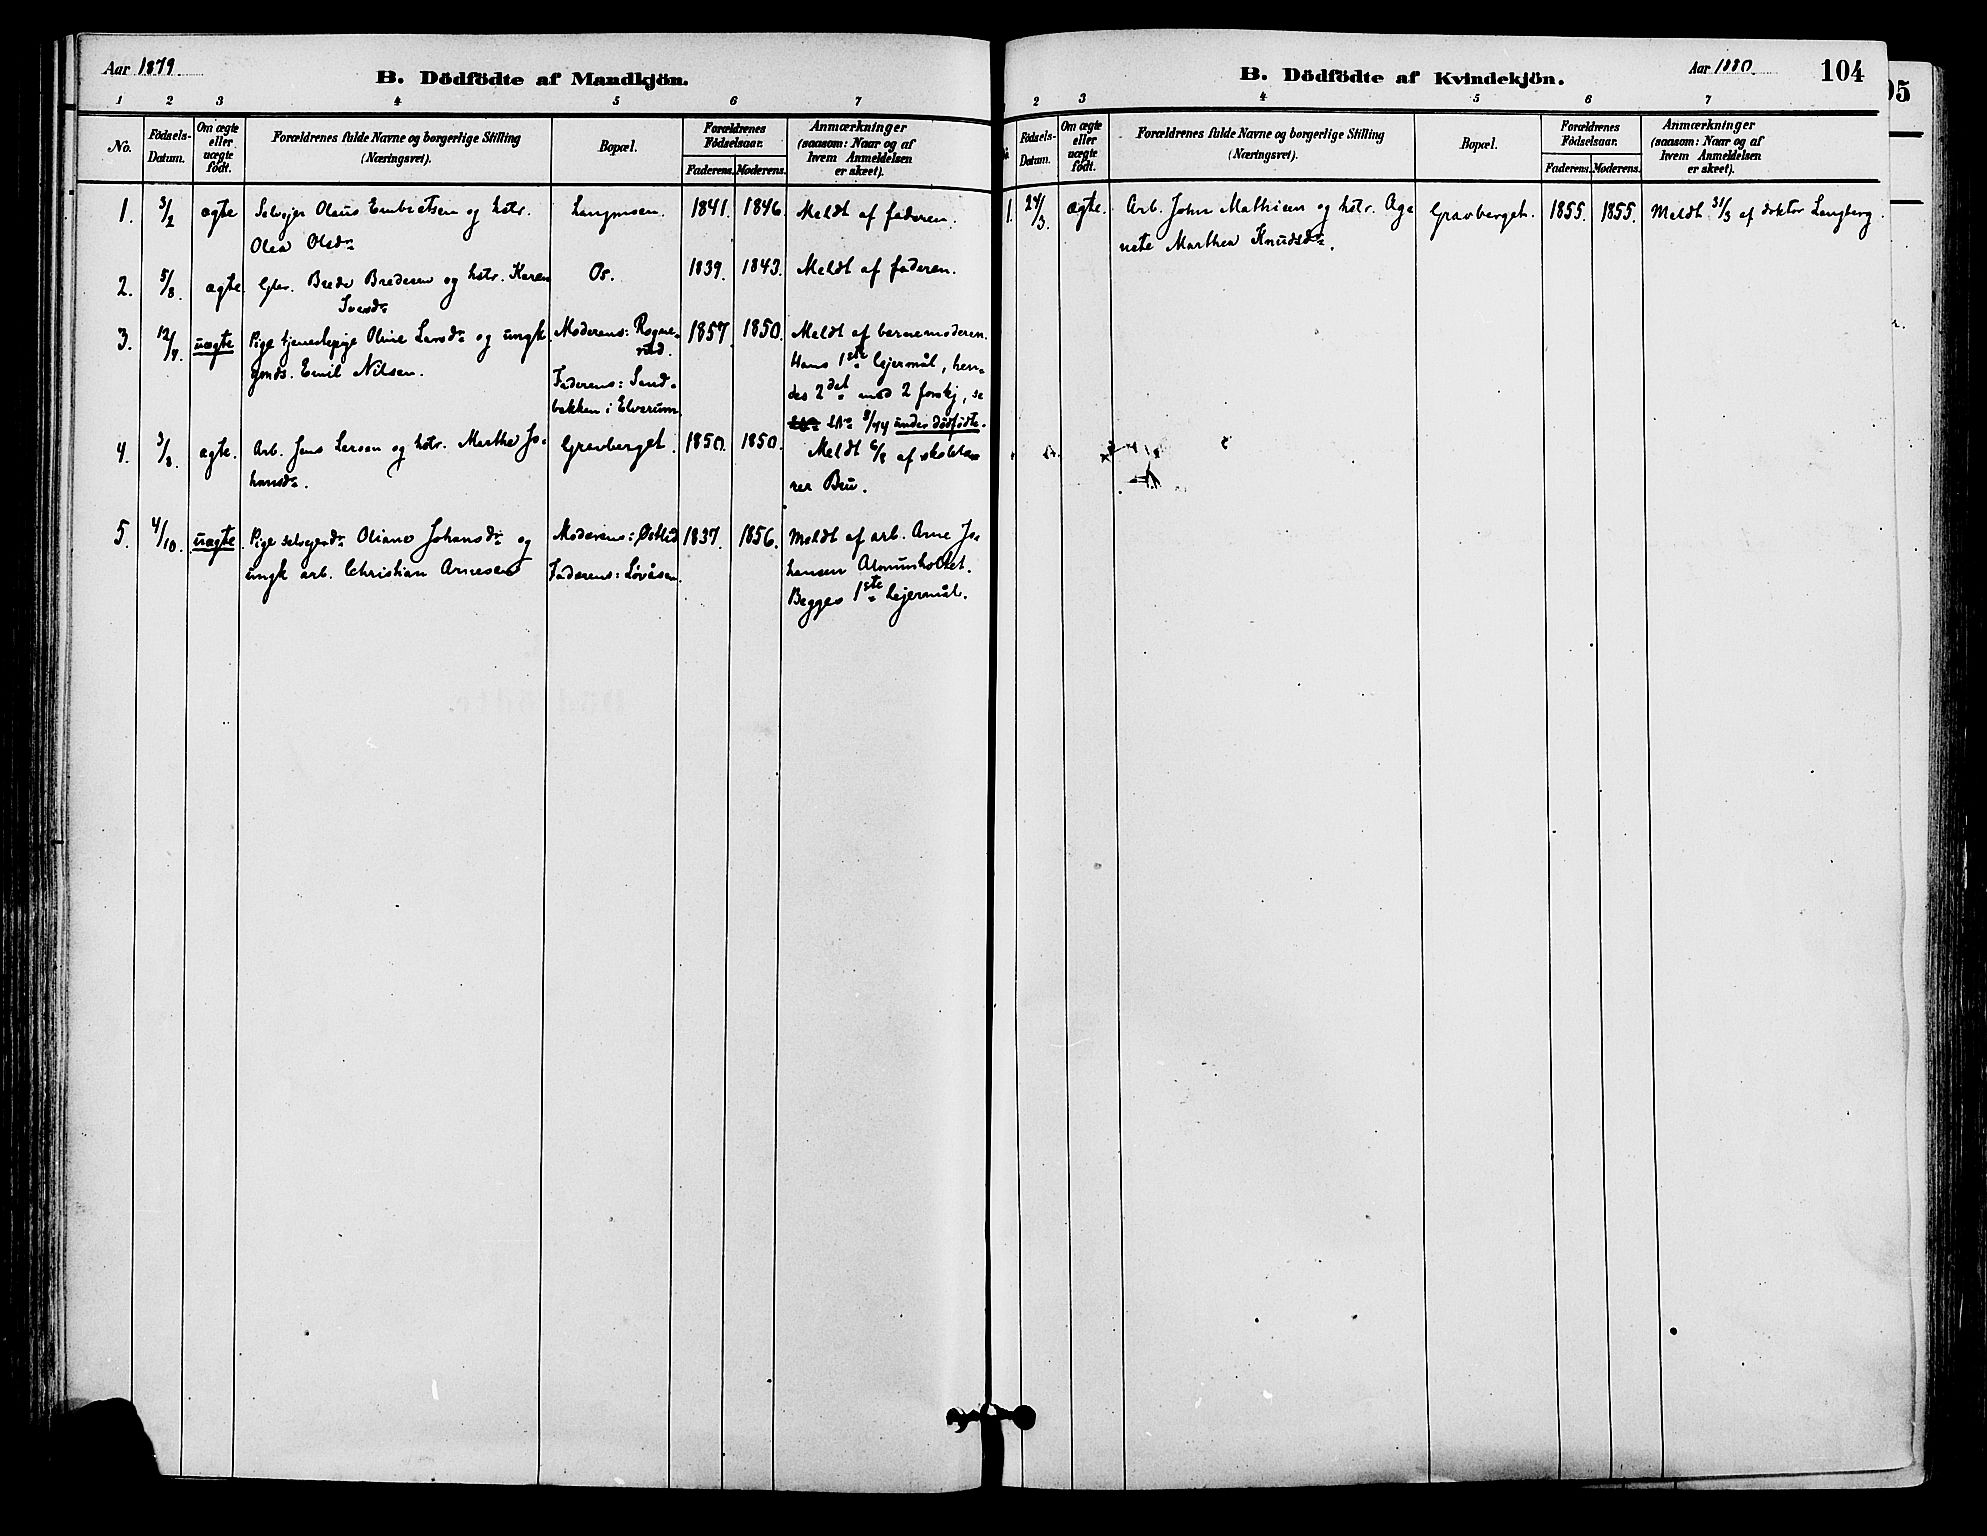 Aar 1879.
B. Dödfödte af Mandkjön.
1 2 3 4 5 6 7
No.
Födsels-
Datum.
Om ægte
eller
uægte
födt.
Forældrenes fulde Navne og borgerlige Stilling
(Næringsvei).
Bopæl.
Forældrenes
Födselsaar.
Faderens. Moderens.
Anmærkninger
(saasom: Naar og af
hvem Anmeldelsen
er skeet).
1. 3/2 ægte Selvejer Olaus Embretsen og hstr. 1841. 1846. Meldt af faderen.
Olea Olsdr
2. 5/8. ægte Brede Bredesen og hstr. Karen Os. 1839. 1843. Meldt af faderen.
Iversdr
3. uægte Pige tjenestepige Oline Larsdr og ungk. Moderens: Rogne- 1857. 1850. Meldt af barnemoderen.
rud.
gmds. Emil Nilsen. Hans 1ste lejermål, hen-
Faderens: Sand- des 2det med 2 forskj, se
bakken i Elverum. No 8/77 under dödfödte.
4. 3/8. ægte. Arb. Jens Larsen og hstr. Marthe Jo- Gravberget. 1850. 1850. Meldt 6/8 af skolelæ-
hansdr. rer Bru.
5. 4/10. uægte. Pige selvejerdr Oliane Johansdr og Moderens: Østlid 1837. 1856. Meldt af arb. Arne Jo-
ungk arb. Christian Arnesen Faderens: Løvåsen. hansen
Begges 1ste lejermål.
Aar 1880.
104
B. Dödfödte af Kvindekjön.
2 3 4 5 6 7
Födsels-
Datum.
Om ægte
eller
uægte
födt.
Forældrenes fulde Navne og borgerlige Stilling
(Næringsvei).
Bopæl.
Forældrenes
Födselsaar.
Faderens. Moderens.
Anmærkninger
(saasom: Naar og af
hvem Anmeldelsen
er skeet).
1. 24/3. ægte. Arb. John Mathisen og hstr. Ag- Gravberget. 1855. 1855. Meldt 31/3 af doktor Langberg.
nete Marthea Knudsdr.